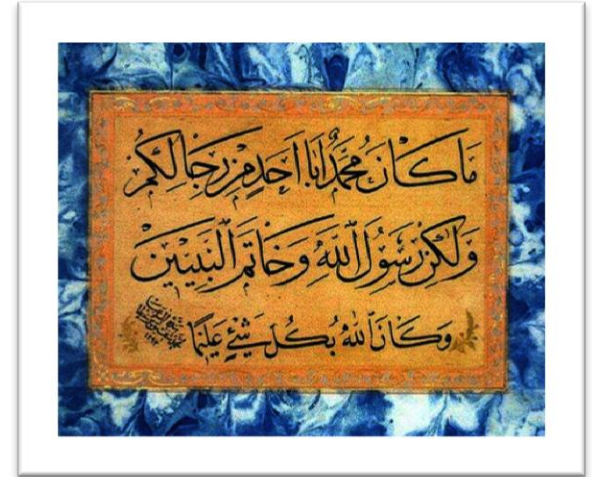 مَا كَانَ مُحَمَّدٌ اَبَا اَحَدٍ مِنْ رِجَالِكُمْ
وَلٰكِنْ رَسُولَ اللّٰهِ وَخَاتَمَ النَّبِيّٖنَ
وَكَانَ اللّٰهُ بِكُلِّ شَيْءٍ عَلٖيمًا